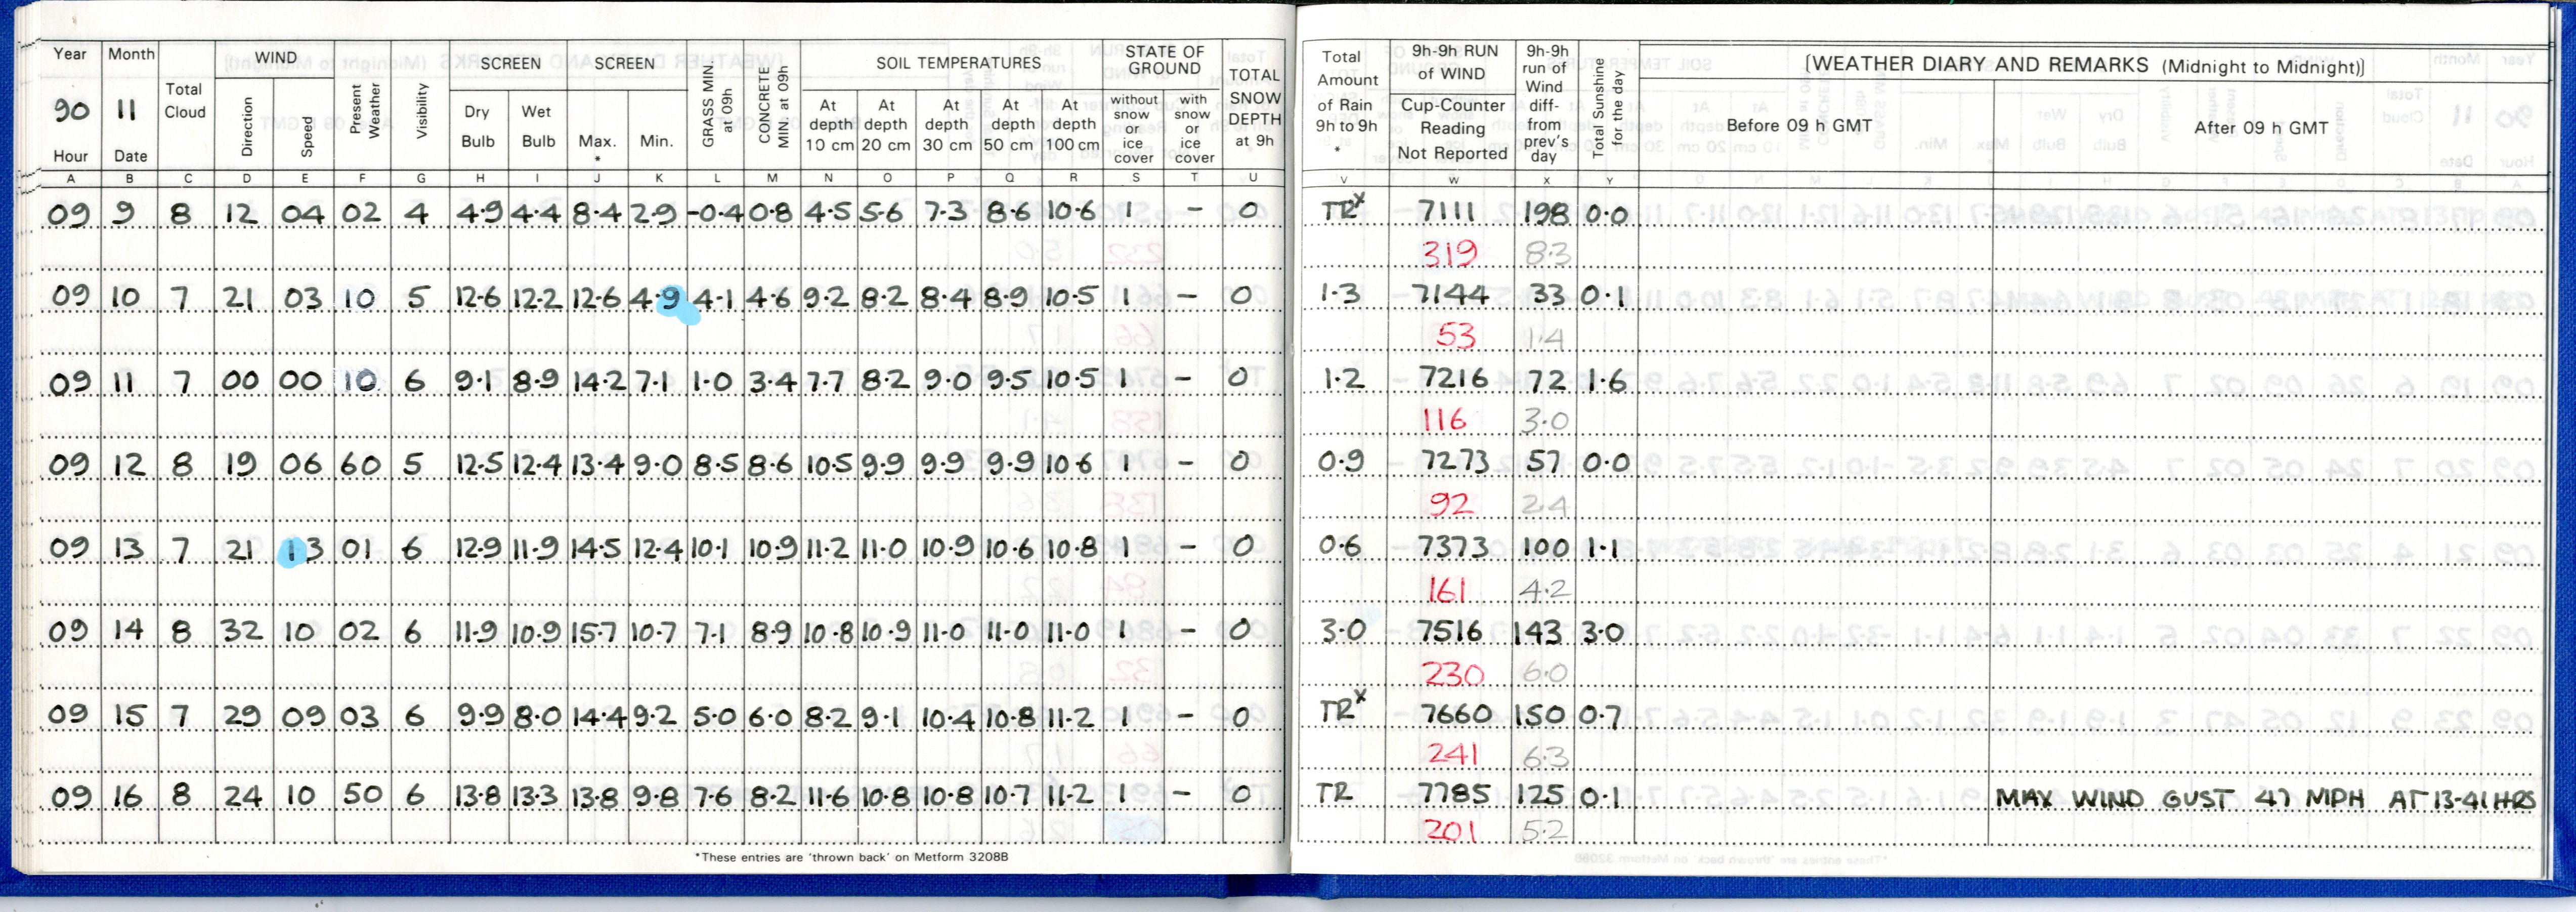 Year Month WIND SCREEN SCREEN SOIL TEMPERATURES STATE OF GROUND
90 11 Total Cloud Direction Speed Present Weather Visibility Dry Bulb Wet Bulb Max. * Min. GRASS MIN. at 09h CONCRETE MIN. at 09h At depth 10 cm At depth 20 cm At depth 30 cm At depth 50 cm At depth 100 cm without snow or ice cover with snow or ice cover TOTAL SNOW DEPTH at 9h
Hour Date
Total Amount of Rain 9h to 9h * 9h-9h RUN of WIND Cup-Counter Reading Not Reported 9h-9h run of Wind diff- from prev's day Total Sunshine for the day [WEATHER DIARY AND REMARKS (Midnight to Midnight)]
Before 09 h GMT After 09 h GMT
A B C D E F G H I J K L M N O P Q R S T U V W X Y
09 9 8 12 04 02 4 4.9 4.4 8.4 2.9 -0.4 0.8 4.5 5.6 7.3 8.6 10.6 1 - 0 TRx 7111 198 0.0
319 8.3
09 10 7 21 03 10 5 12.6 12.2 12.6 4.9 4.1 4.6 9.2 8.2 8.4 8.9 10.5 1 - 0 1.3 7144 33 0.1
53 1.4
09 11 7 00 00 10 6 9.1 8.9 14.2 7.1 1.0 3.4 7.7 8.2 9.0 9.5 10.5 1 - 0 1.2 7216 72 1.6
116 3.0
09 12 8 19 06 60 5 12.5 12.4 13.4 9.0 8.5 8.6 10.5 9.9 9.9 9.9 10 6 1 - 0 0.9 7273 57 0.0
92 2.4
09 13 7 21 13 01 6 12.9 11.9 14.5 12.4 10.1 10.9 11.2 11.0 10.9 10.6 10.8 1 - 0 0.6 7373 100 1.1
161 4.2
09 14 8 32 10 02 6 11.9 10.9 15.7 10.7 7.1 8.9 10.8 10.9 11.0 11.0 11.0 1 - 0 3.0 7516 143 3.0
230 6.0
09 15 7 29 09 03 6 9.9 8.0 14.4 9.2 5.0 6.0 8.2 9.1 10.4 10.8 11.2 1 - 0 TRx 7660 150 0.7
241 6.3
09 16 8 24 10 50 6 13.8 13.3 13.8 9.8 7.6 8.2 11.6 10.8 10.8 10.7 11.2 1 - 0 TR 7785 125 0.1 MAX WIND GUST 47 MPH AT 13-41 HRS
201 5.2
*These entries are 'thrown back' on Metform 3208B